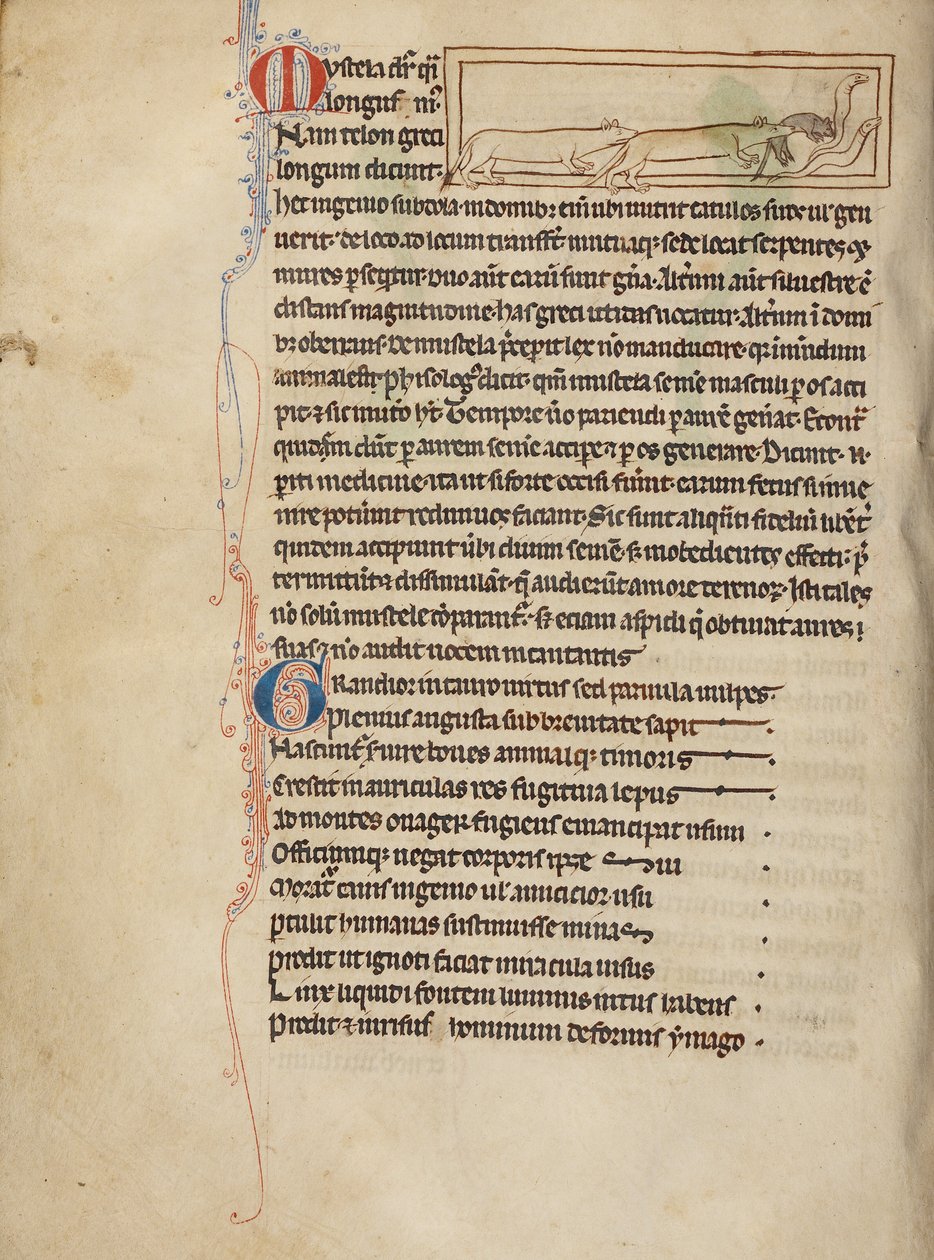 Mustela dr̄ q̄ͥ
longus m̉
Nam telon greci
longum dicunt.
hec ingenio subdola. in domibꝫ eī ubi nutrit catulos suos ut gen
uerit. de loco ad locum transfert. mutuaqꝫ sede locat serpentes ⁊
mures ꝑseq̄tur. duo aūt earū sunt gn̄a. Altm̄ aūt siluestre ē
distans magnitudine. has greci ictidas uocatur. Altm̄ ī domi
bꝫ oberrans. De mustela p̄cepit lex nō manducare. qr īmūdum
animal est. Phisologꝰ dicit. qm̄ mustela semē masculi ꝑ os acci
pit. ⁊ sic in utō ht̄. Tempore ūo pariendi ꝑ aurē gen̄at. Econtͣ
quidā dn̄t ꝑ aurem semē accipe. ⁊ ꝑ os generare. Dicunt. n̄.
ꝑiti medicine. ita ut si forte occisi fūint. earum fetus si inue
nire potūint rediuiuos faciant. Sic sunt aliqn̄ti fideliū libēt͛
quidem accipiunt ūbi diuini semē. sꝫ inobedientes effecti. p̄
termittūt ⁊ dissimulāt. q̄ audierūt amore terenoꝝ. Isti tales
nō solū mustele cōparantr̄. sꝫ eciam aspidi q̄ obturat aures
suas ⁊ nō audit uocem incantantis
Grandior in tauro uirtus sed paruula uulpes.
Plenius angusta sub breuitate sapit.
Nascuntr̄ fure boues animalqꝫ timoris.
Crescit in auriculas res fugitiua lepus.
Ad montes onager fugiens emancipat usum.
Officiumqꝫ negat corporis ipse sui.
Moratͣ canis ingenio ul' amicicior usu
ꝑtulit humanas sustinuisse minas.
Prodit ut ignoti faciat miracula uisus.
Linx liquidi fontem luminis intus habens.
Prodit ⁊ in risus hominum deformis ymago.